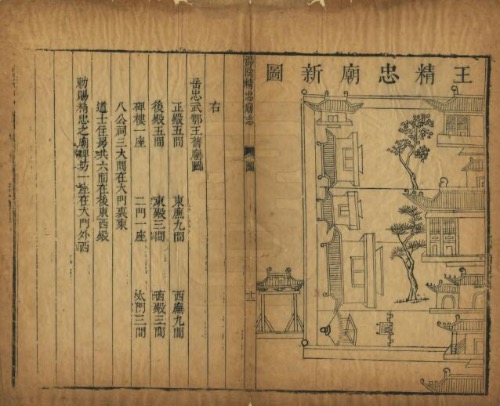 王精忠廟新圖
右
岳忠武鄂王舊廟圖
正殿五間 東廡九間 西廡九間
後殿五間 東殿三間 西殿三間
碑樓一座 二門一座 大門三間
八公祠三大間在大門裏東
道士住房共六間在後東西殿
勑賜精忠之廟牌坊一座在大門外西